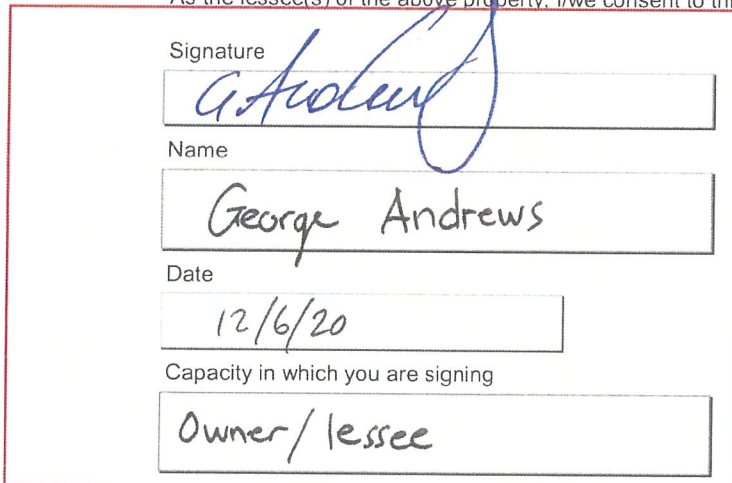 As the lessee(s) of the above property, I/we consent to
Signature
G Andrews
Name
George Andrews
Date
12/6/20
Capacity in which you are signing
Owner/lessee